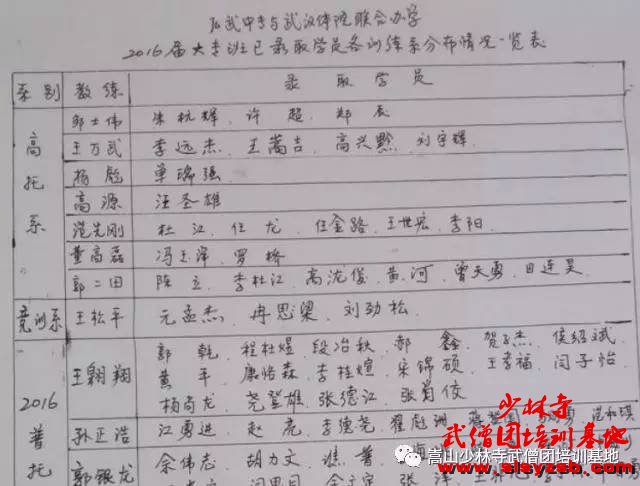 弘武中专与武汉体院联合办学
2016届大专班已录取学员各训练系分布情况一览表
系别 教练 录取学员
高托系
郭士伟 朱杭辉、许超、郑辰
王万武 李远杰、王嵩吉、高兴黔、刘宇辉
杨彪 单瑞强
高源 汪圣雄
范先刚 杜江、任龙、任金路、王世宏、李阳
董高磊 冯玉泽、罗桥
郭二田 陈立、李杜江、高沈俊、黄河、曾天勇、田连昊
竞训系 王松平 元孟杰、冉思梁、刘劲松
2016普托
王翱翔 郭乾、程杜煜、段冶秋、郝鑫、贺子杰、侯绍斌
黄平、康恪森、李桂煊、宋锦硕、王孝福、闫子怡
杨尚龙、尧登雄、张德江、张尚佼
孙正浩 江勇进、赵亮、李德尧、翟彪
郭银龙 余伟志、胡力文、谯普
少林寺
武僧团培训基地
嵩山少林寺武僧团培训基地
www.slsyzeb.com